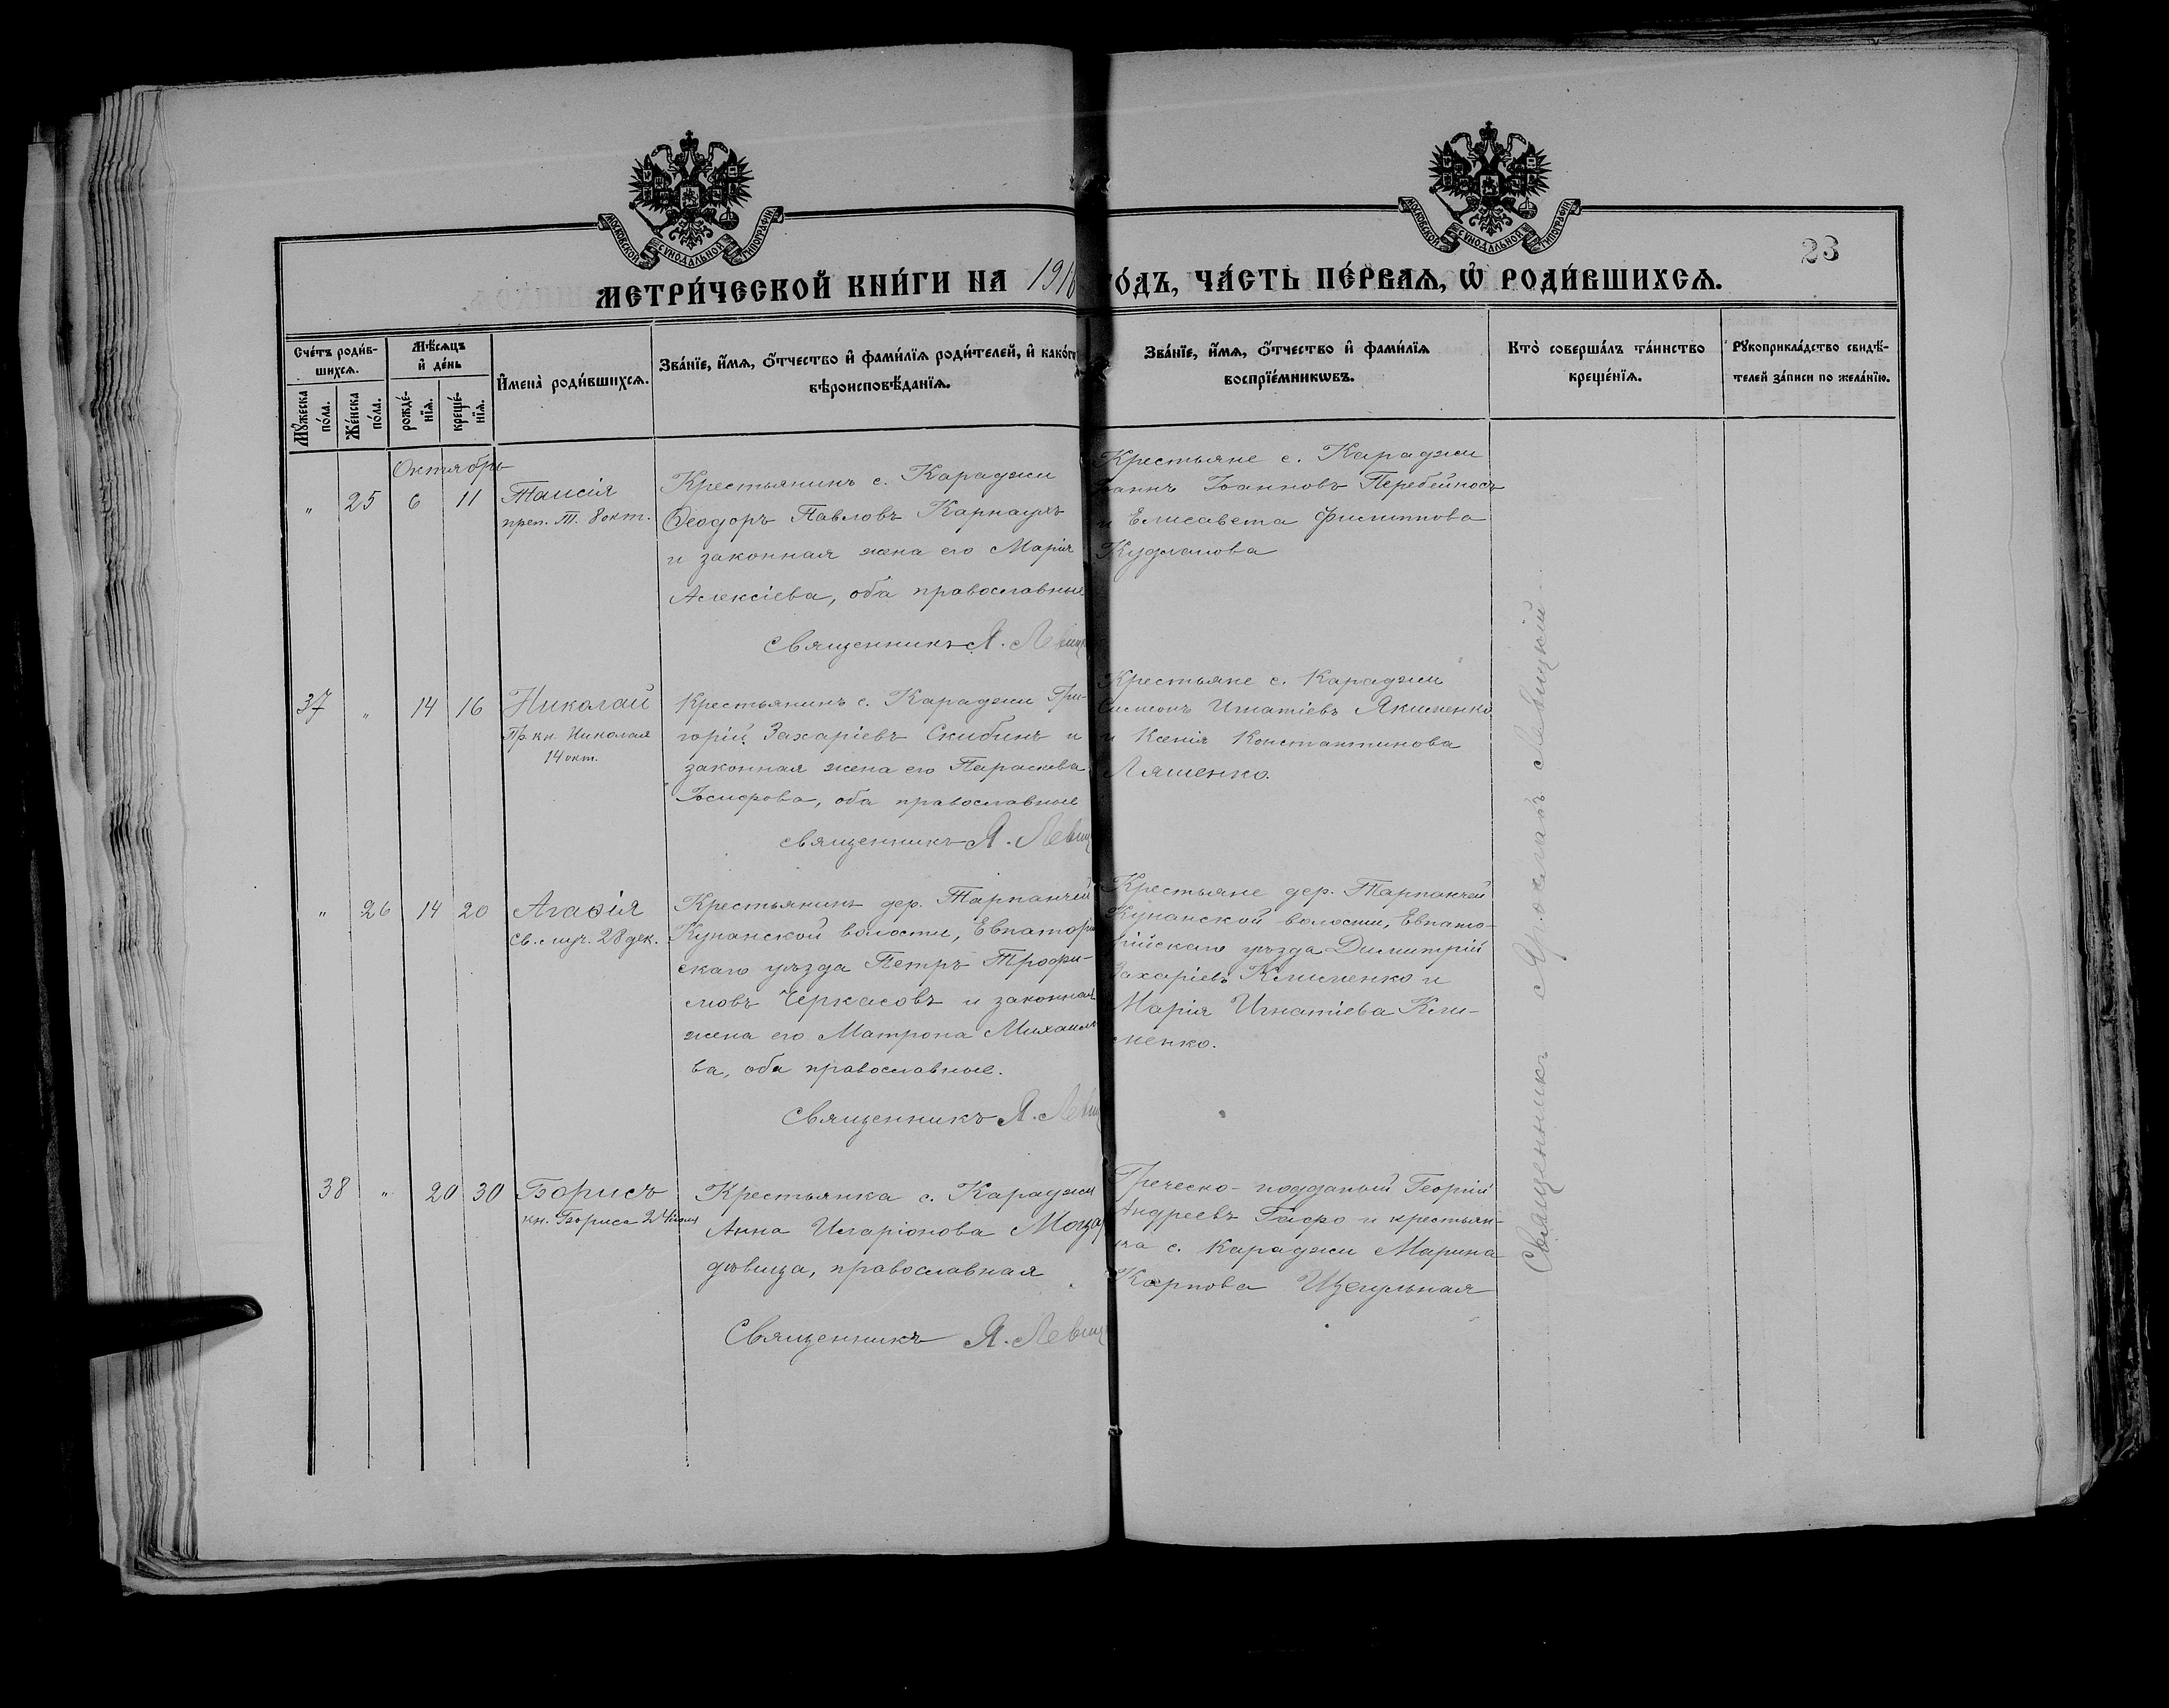 МОСКОВСКОЙ СУНОДАЛЬНОЙ ТИПОГРАФІИ
МОСКОВСКОЙ СУНОДАЛЬНОЙ ТИПОГРАФІИ
23
МЕТРИ́ЧЕСКОЙ КНИ́ГИ НА 191
О́ДЪ, ЧА́СТЬ ПЕ́РВАѦ, Ѽ РОДИ́ВШИХСѦ.
Сче́тъ роди́в-
шихсѧ.
Мꙋ́жеска
по́ла.
Же́нска
по́ла.
Мѣ́сѧцъ
и҆ де́нь
рожде́-
нїѧ.
креще́-
нїѧ.
И҆мена̀ роди́вшихсѧ.
Зва́нїе, и҆́мѧ, ѻ҆́тчество и҆ фами́лїѧ роди́телей, и҆ како́гѡ
вѣроисповѣ́данїѧ.
Зва́нїе, и҆́мѧ, ѻ҆́тчество и҆ фами́лїѧ
воспрїе́мникѡвъ.
Кто̀ соверша́лъ та́инство
креще́нїѧ.
Рꙋкоприкла́дство свидѣ́-
телей за́писи по жела́нїю.
Октябрь
" 25 6 11
Таисія
преп. Т. 8 окт.
Крестьянинъ с. Караджи
Ѳеодоръ Павловъ Карнаухъ
и законная жена его Марія
Алексіева, оба православные
Священникъ Я. Левиц
Крестьяне с. Караджи
Іоаннъ Іоанновъ Перебейносъ
и Елисавета Филиппова
37 " 14 16
Николай
Пр. кн. Николая
14 окт.
Крестьянинъ с. Караджи Гри-
горій Захаріевъ Скибинъ и
законная жена его Параскева
Іосифова, оба православные
священникъ Я. Левиц
Крестьяне с. Караджи
Симеонъ Игнатіевъ Якименко
и Ксенія Константинова
Ляшенко.
" 26 14 20
Агаѳія
св. муч. 28 дек.
Крестьянинъ дер. Тарпанчей
Кунанской волости, Евпатор
скаго уѣзда Петръ Трофи-
мовъ Черкасовъ и законная
жена его Матрона Михаило
ва, оба православные.
Священникъ Я. Левиц
Крестьяне дер. Тарпанчей
Кунанской волости, Евпато-
рійскаго уѣзда Димитрій
Захаріевъ Клименко и
Марія Игнатіева Кли-
менко.
38 " 20 30
Борисъ
кн. Бориса 24 іюля
Крестьянка с. Караджи
Анна Иларіонова
дѣвица, православная
Священникъ Я. Левиц
Греческо-подданый Георгій
Андреевъ и крестьян-
ка с. Караджи Марина
Карпова Щегульная
Священникъ Ярославъ Левицкій